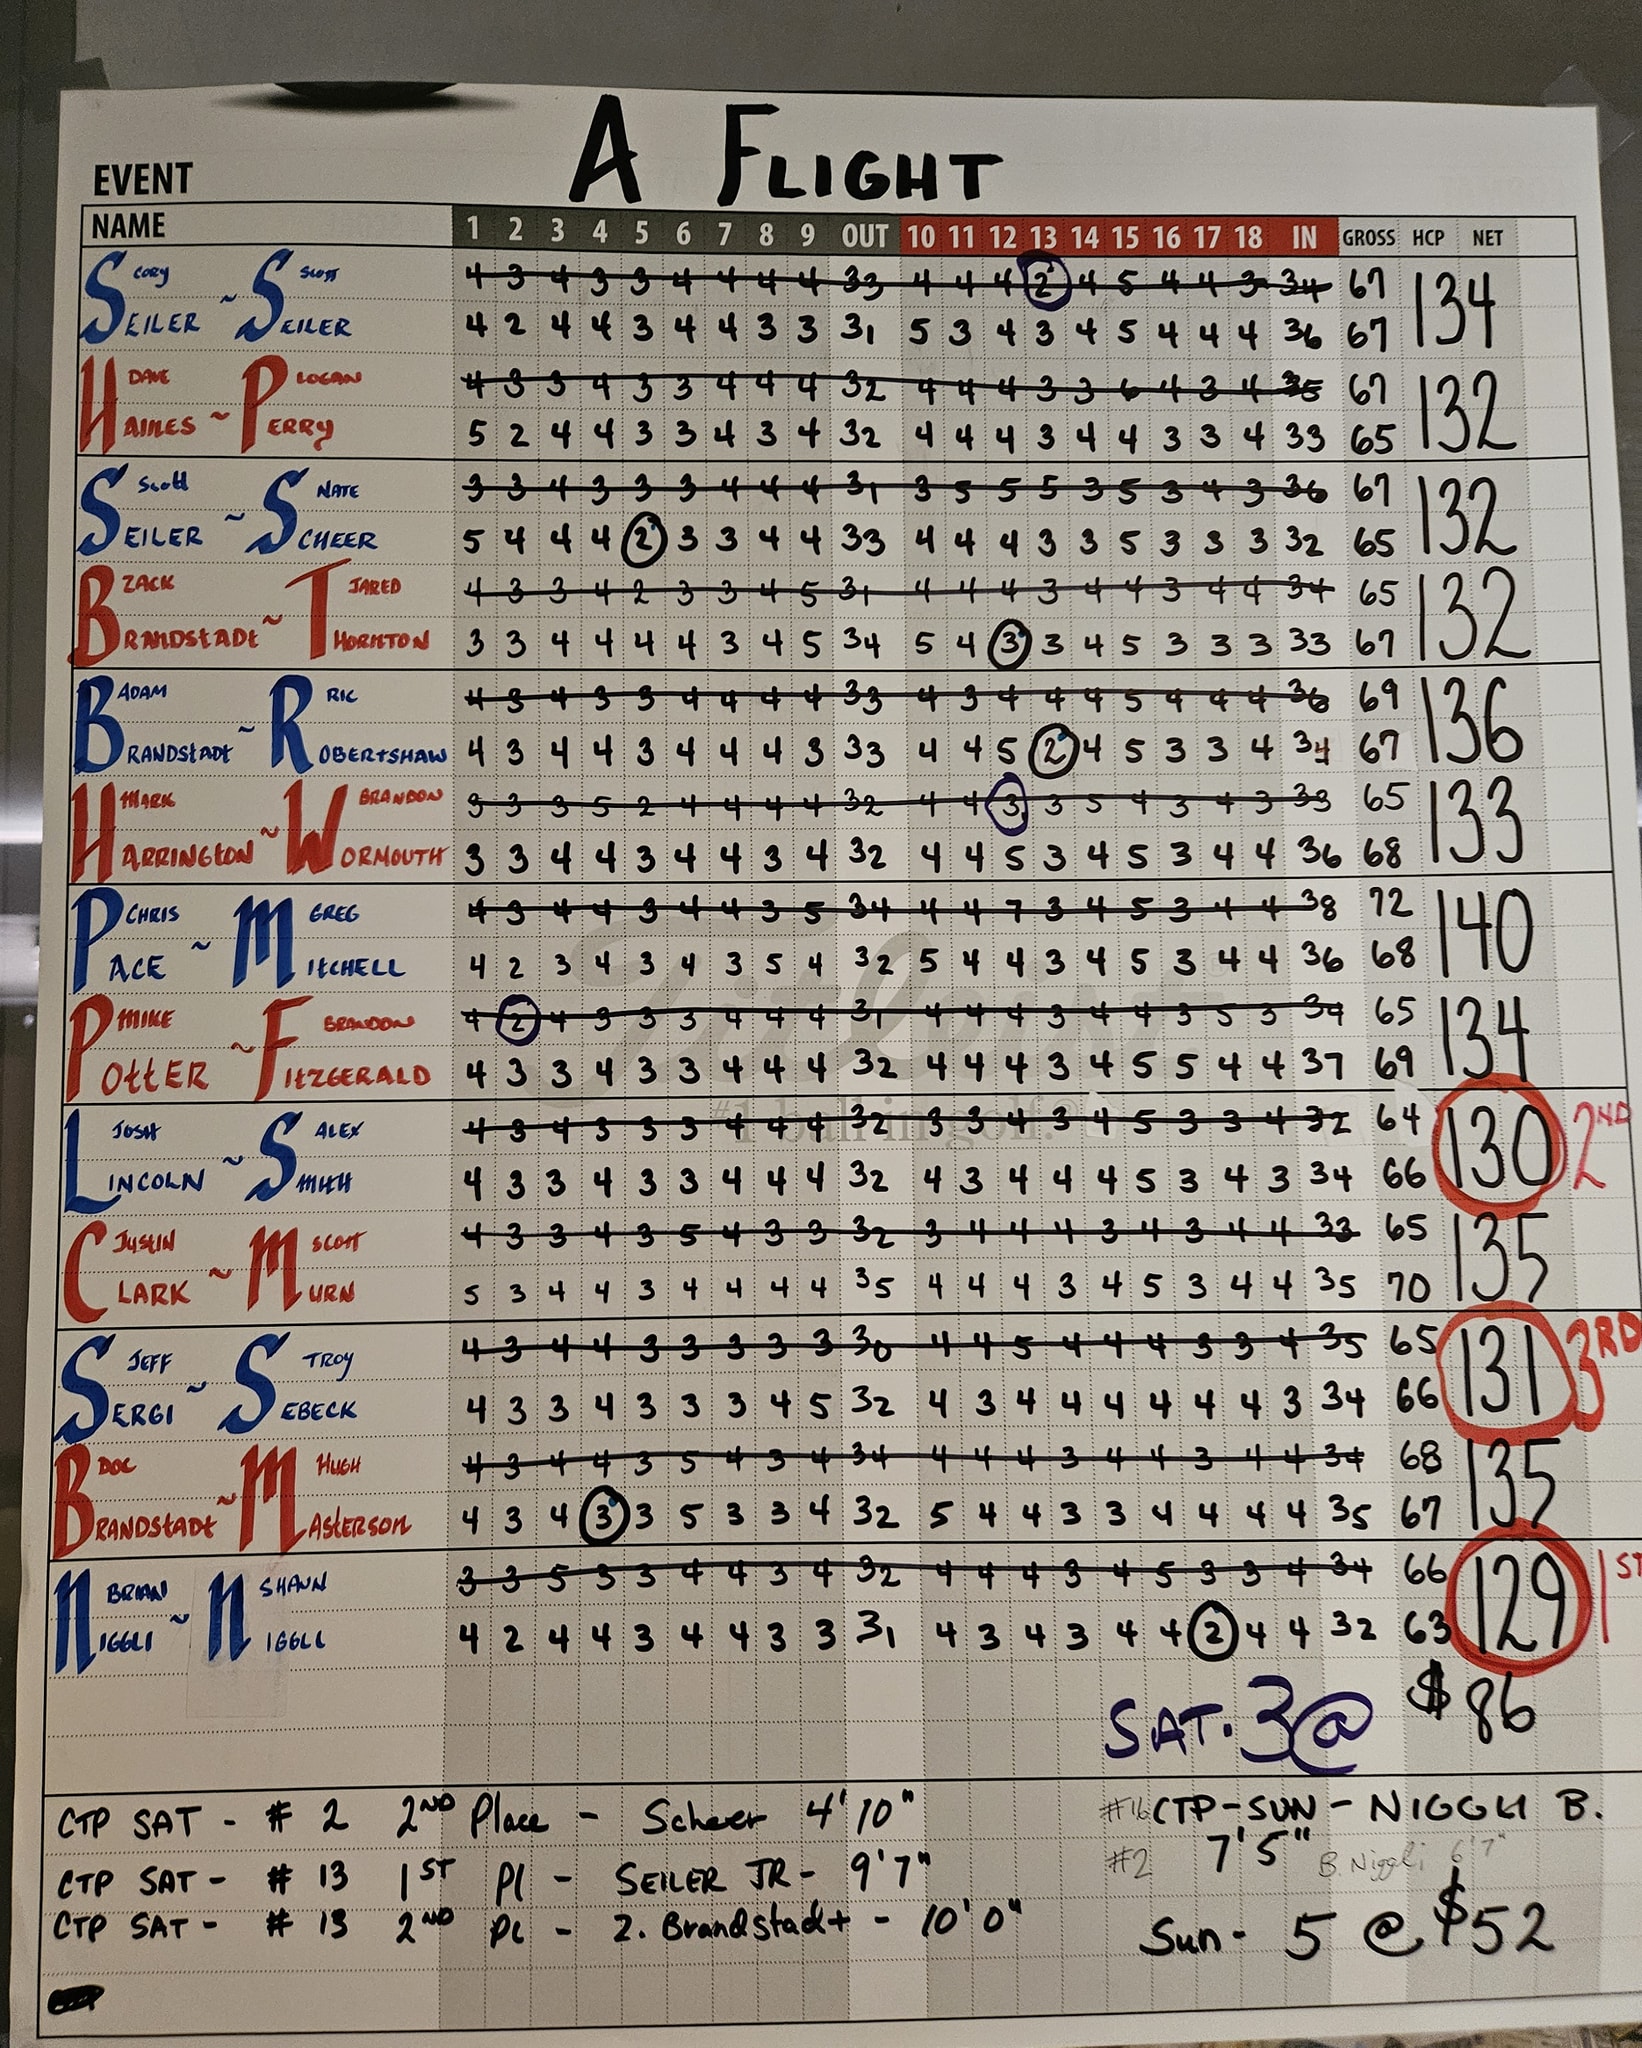 A FLIGHT
EVENT
NAME 1 2 3 4 5 6 7 8 9 OUT 10 11 12 13 14 15 16 17 18 IN GROSS HCP NET
CORY SEILER ~ SCOTT SEILER 134
4 3 4 3 3 4 4 4 4 33 4 4 4 2 4 5 4 4 3 34 67
4 2 4 4 3 4 4 3 3 31 5 3 4 3 4 5 4 4 4 36 67
DAVE HAINES ~ LOGAN PERRY 132
4 3 3 4 3 3 4 4 4 32 4 4 4 3 3 6 4 3 4 35 67
5 2 4 4 3 3 4 3 4 32 4 4 4 3 4 4 3 3 4 33 65
Scott SEILER ~ NATE SCHEER 132
3 3 4 3 3 3 4 4 4 31 3 5 5 5 3 5 3 4 3 36 67
5 4 4 4 2 3 3 4 4 33 4 4 4 3 3 5 3 3 3 32 65
ZACK BRANDStADt ~ JARED THORNTON 132
4 3 3 4 2 3 3 4 5 31 4 4 4 3 4 4 3 4 4 34 65
3 3 4 4 4 4 3 4 5 34 5 4 3 3 4 5 3 3 3 33 67
ADAM BRANDStADt ~ RIC ROBERtSHAW 136
4 3 4 3 3 4 4 4 4 33 4 3 4 4 4 5 4 4 4 36 69
4 3 4 4 3 4 4 4 3 33 4 4 5 2 4 5 3 3 4 34 67
MARK HARRINGtON ~ BRANDON WORMOUTH 133
3 3 3 5 2 4 4 4 4 32 4 4 3 3 5 4 3 4 3 33 65
3 3 4 4 3 4 4 3 4 32 4 4 5 3 4 5 3 4 4 36 68
CHRIS PACE ~ GREG MItCHELL 140
4 3 4 4 3 4 4 3 5 34 4 4 7 3 4 5 3 4 4 38 72
4 2 3 4 3 4 3 5 4 32 5 4 4 3 4 5 3 4 4 36 68
MIKE POttER ~ BRANDON FItZGERALD 134
4 2 4 3 3 3 4 4 4 31 4 4 4 3 4 4 3 5 3 34 65
4 3 3 4 3 3 4 4 4 32 4 4 4 3 4 5 5 4 4 37 69
JOSH LINCOLN ~ ALEX SMItH 130 2ND
4 3 4 3 3 3 4 4 4 32 3 3 4 3 4 5 3 3 4 32 64
4 3 3 4 3 3 4 4 4 32 4 3 4 4 4 5 3 4 3 34 66
JUStIN CLARK ~ SCOtt MURN 135
4 3 3 4 3 5 4 3 3 32 3 4 4 4 3 4 3 4 4 33 65
5 3 4 4 3 4 4 4 4 35 4 4 4 3 4 5 3 4 4 35 70
JEFF SERGI ~ TROY SEBECK 131 3RD
4 3 4 4 3 3 3 3 3 30 4 4 5 4 4 4 3 3 4 35 65
4 3 3 4 3 3 3 4 5 32 4 3 4 4 4 4 4 4 3 34 66
DOC BRANDStADt ~ HUGH MAStERSON 135
4 3 4 4 3 5 4 3 4 34 4 4 4 3 4 4 3 4 4 34 68
4 3 4 3 3 5 3 3 4 32 5 4 4 3 3 4 4 4 4 35 67
BRIAN NIGGLI ~ SHAUN NIGGLI 129 1ST
3 3 5 3 3 4 4 3 4 32 4 4 4 3 4 5 3 3 4 34 66
4 2 4 4 3 4 4 3 3 31 4 3 4 3 4 4 2 4 4 32 63
Titleist
#1 ball in golf.®
SAT. 3@ $86
CTP SAT - # 2 2ND Place - Scheer 4'10"
#16 CTP-SUN - NIGGLI B.
7'5"
#2 B. Niggli 6'7"
CTP SAT - # 13 1ST Pl - SEILER JR - 9'7"
CTP SAT - # 13 2ND Pl - Z. Brandstadt - 10'0"
Sun - 5 @ $52